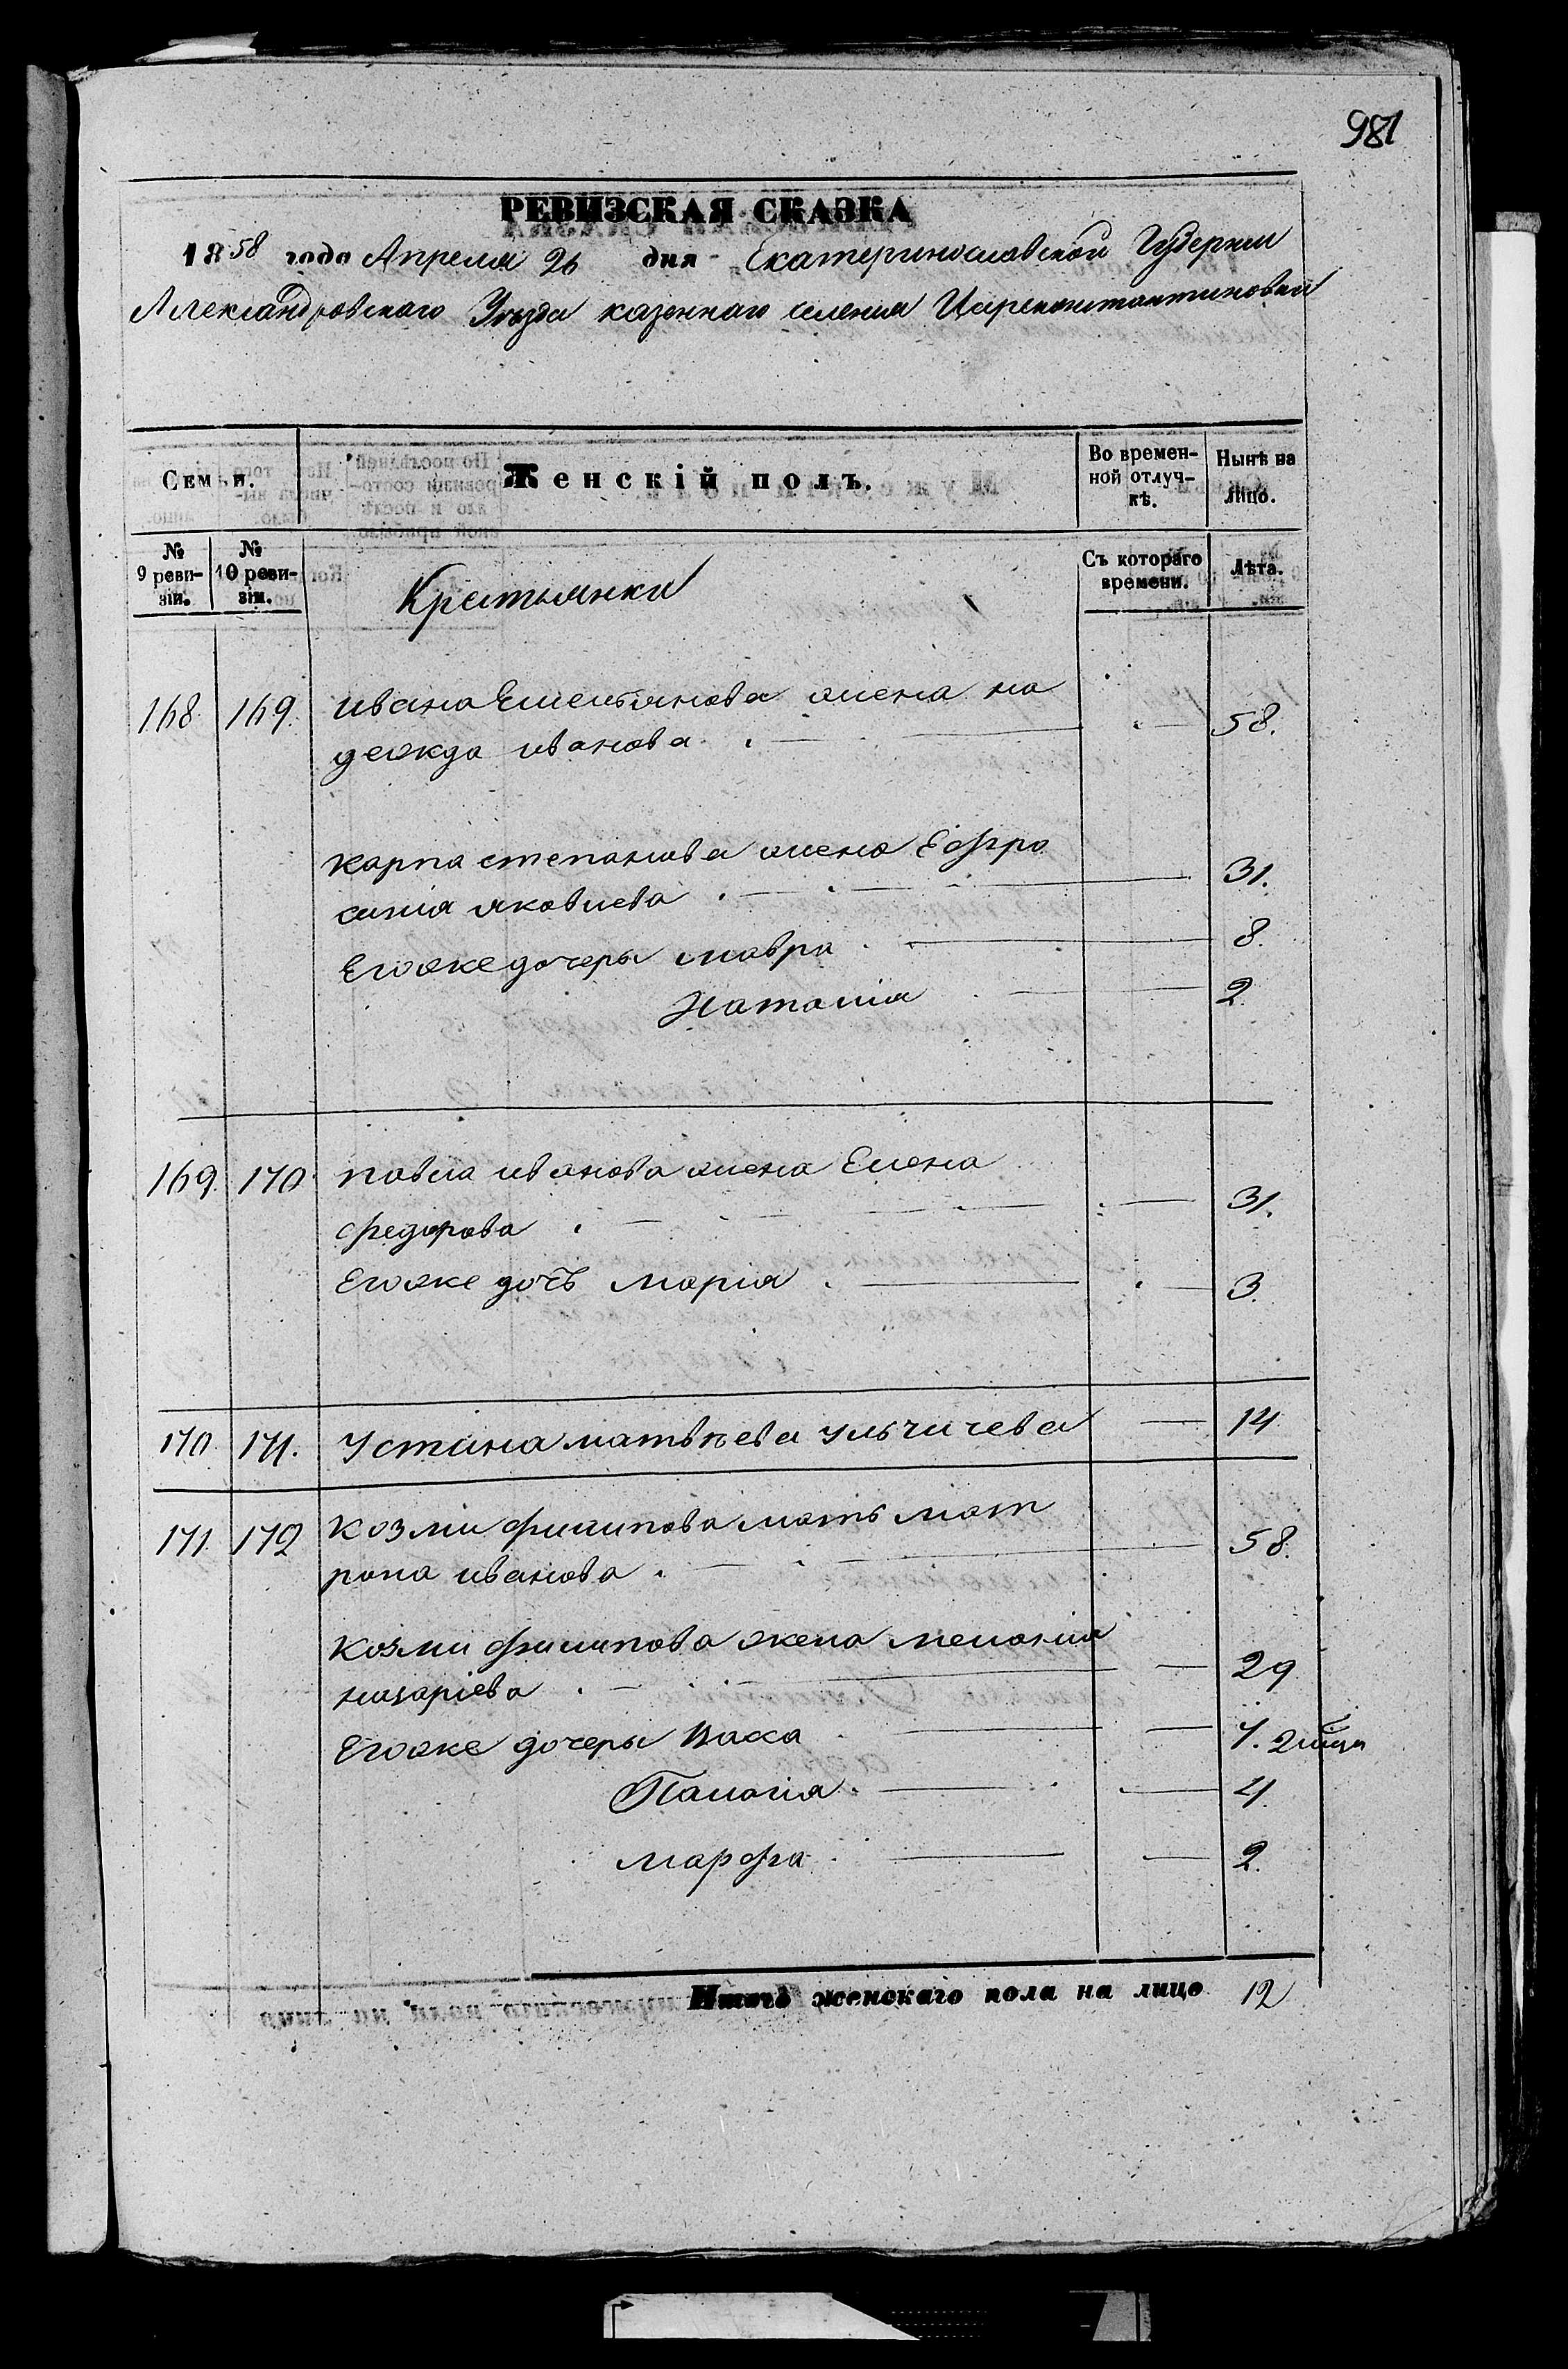 981
РЕВИЗСКАЯ СКАЗКА
1858 года Апреля 26 дня Екатеринославской Губернии
Александровскаго Уѣзда казеннаго селения Цареконстантиновки
Семьи.
Женскій полъ.
Во времен-
ной отлуч-
кѣ.
Нынѣ на
лицо.
№
9 реви-
зіи.
№
10 реви-
зіи.
Крестьянки
Съ котораго
времени.
Лѣта.
168. 169. ивана Емельянова жена на
дежда иванова 58.
карпа степанова жена Ефро
синия яковлева 31.
Егоже дочеры мавра 8.
Наталия 2
169. 170. павла иванова жена Елена
федорова 31.
Егоже дочь мария 3.
170. 171. Устина матвѣева ульчичева 14
171. 172 козми филипова мать мат
рона иванова 58.
козми филипова жена мелания
назариева 29
Егоже дочеры Васса 7.
Палагия 4.
марфа 2.
Итого женскаго пола на лицо 12